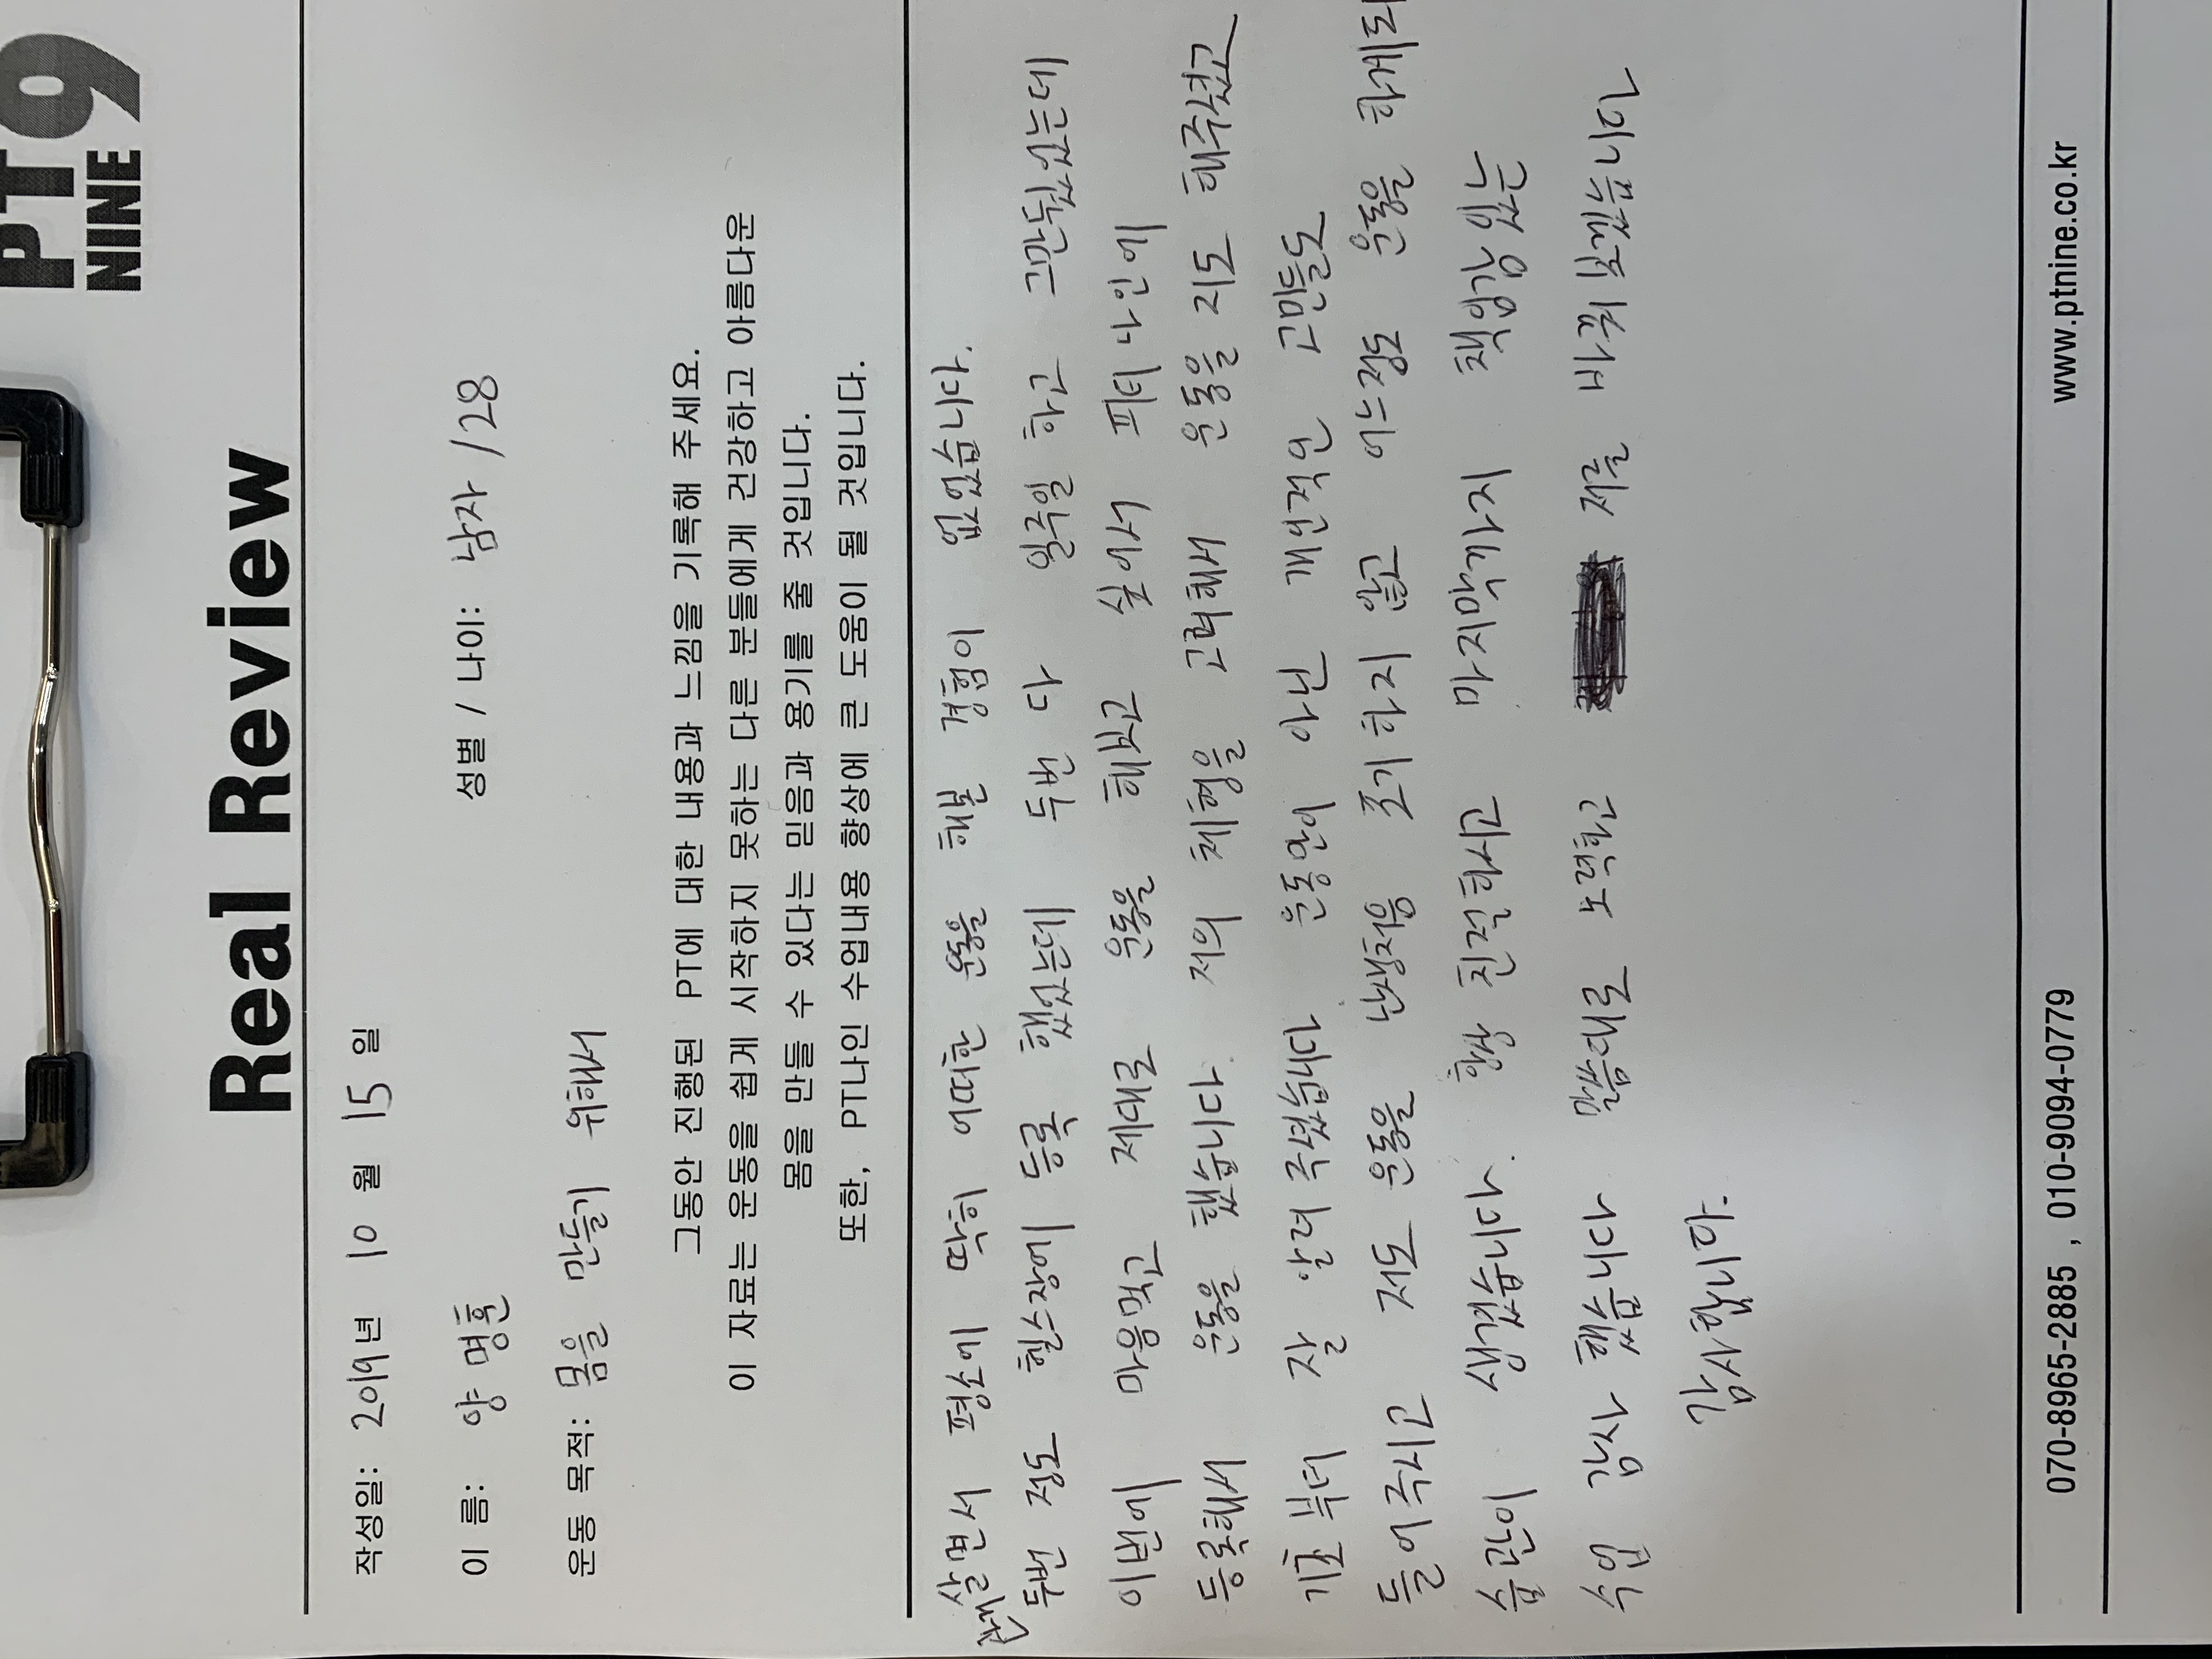 PT9
NINE
Real Review
작성일: 2019년 10월 15일
이 름: 양 명훈 성별 / 나이: 남자 /28
운동 목적: 몸을 만들기 위해서
그동안 진행된 PT에 대한 내용과 느낌을 기록해 주세요.
이 자료는 운동을 쉽게 시작하지 못하는 다른 분들에게 건강하고 아름다운
몸을 만들 수 있다는 믿음과 용기를 줄 것입니다.
또한, PT나인 수업내용 향상에 큰 도움이 될 것입니다.
살면서 평소에 딱히 어떠한 운동을 해본 경험이 없었습니다.
두번 정도 헬스장에 등록 했었는데 두번 다 일주일 하고 그만뒀었는데
이번에 마음먹고 제대로 운동을 해보고 싶어서 피티나인에
등록해서 운동을 했습니다. 저의 체형을 고려해서 운동을 지도 해주셨고
기초부터 잘 알려주셨습니다 운동만이 아닌 개인적인 고민들도
들어주시고 저도 운동을 난생처음 포기하지 않고 어느정도 운동을 하게되
습관이 생겼습니다. 항상 친절하시고 마지막까지 책임감있는
수업 감사했습니다 말씀대로 노력하고 저를 바꿔보겠습니다
감사합니다.
070-8965-2885 , 010-9094-0779 www.ptnine.co.kr